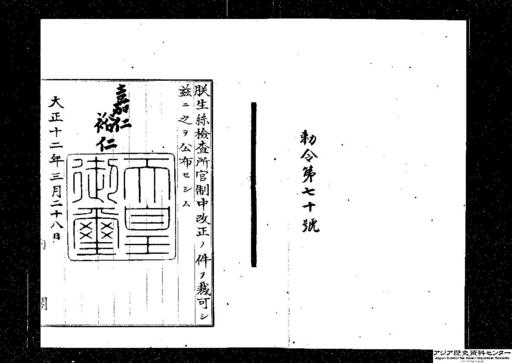 勅令第七十號
朕生絲檢査所官制中改正ノ件ヲ裁可シ
茲ニ之ヲ公布セシム
嘉仁
裕仁
天皇
御璽
大正十二年三月二十八日
閣
アジア歴史資料センター
Japan Center for Asian Historical Records